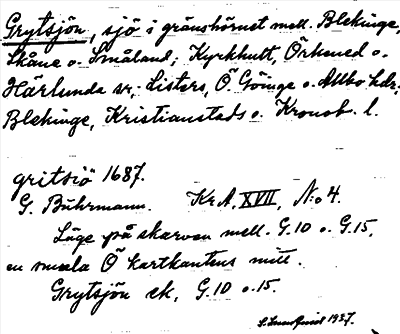 Grytsjön, sjö i gränshörnet mell. Blekinge,
Skåne o. Småland; Kyrkhult, Örkened o.
Härlunda sr; Listers, Ö Göinge o. Allbo hdr,
Blekinge, Kristianstads o. Kronob. l.
gritsiö 1687.
G. Buhrmann. Kr.A. XVII, N:o 4.
Läge på skarven mell. G.10 o. G.15,
en smula Ö kartkantens mitt.
Grytsjön ek, G.10 o.15.
1937.